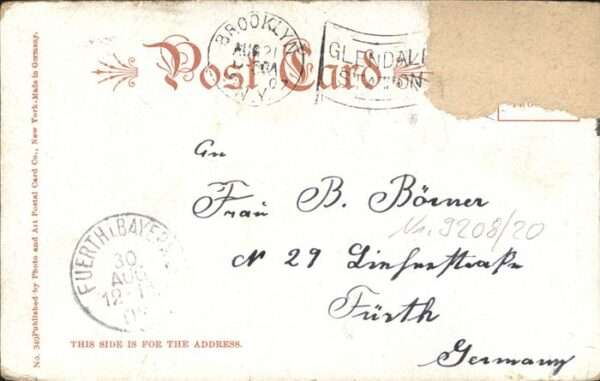 BROOKLYN
AUG 21
N.Y.
GLENDALE
STATION
Post Card
An
Frau B. Börner
No. 9208/20
N 29
Fürth
Germany
FUERTH (BAYERN)
30.
AUG
12-1
THIS SIDE IS FOR THE ADDRESS.
Published by Photo and Art Postal Card Co., New York.-Made in Germany.